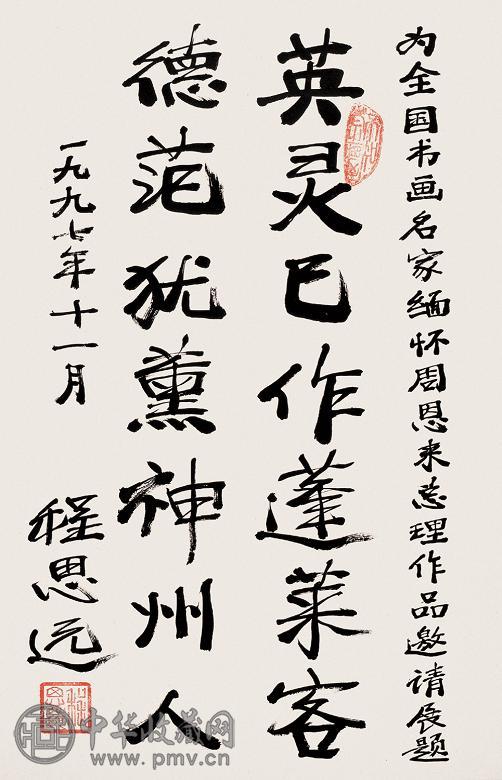 为全国书画名家缅怀周恩来总理作品邀请展题
英灵已作蓬莱客
德范犹薰神州人
一九九七年十一月
程思远
中华收藏网
www.pmv.cn